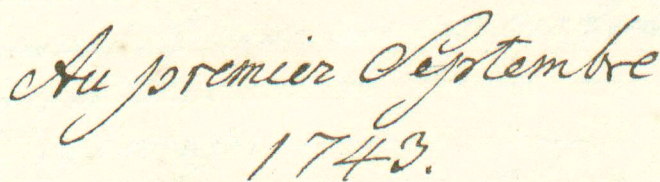 Au premier Septembre
1743.